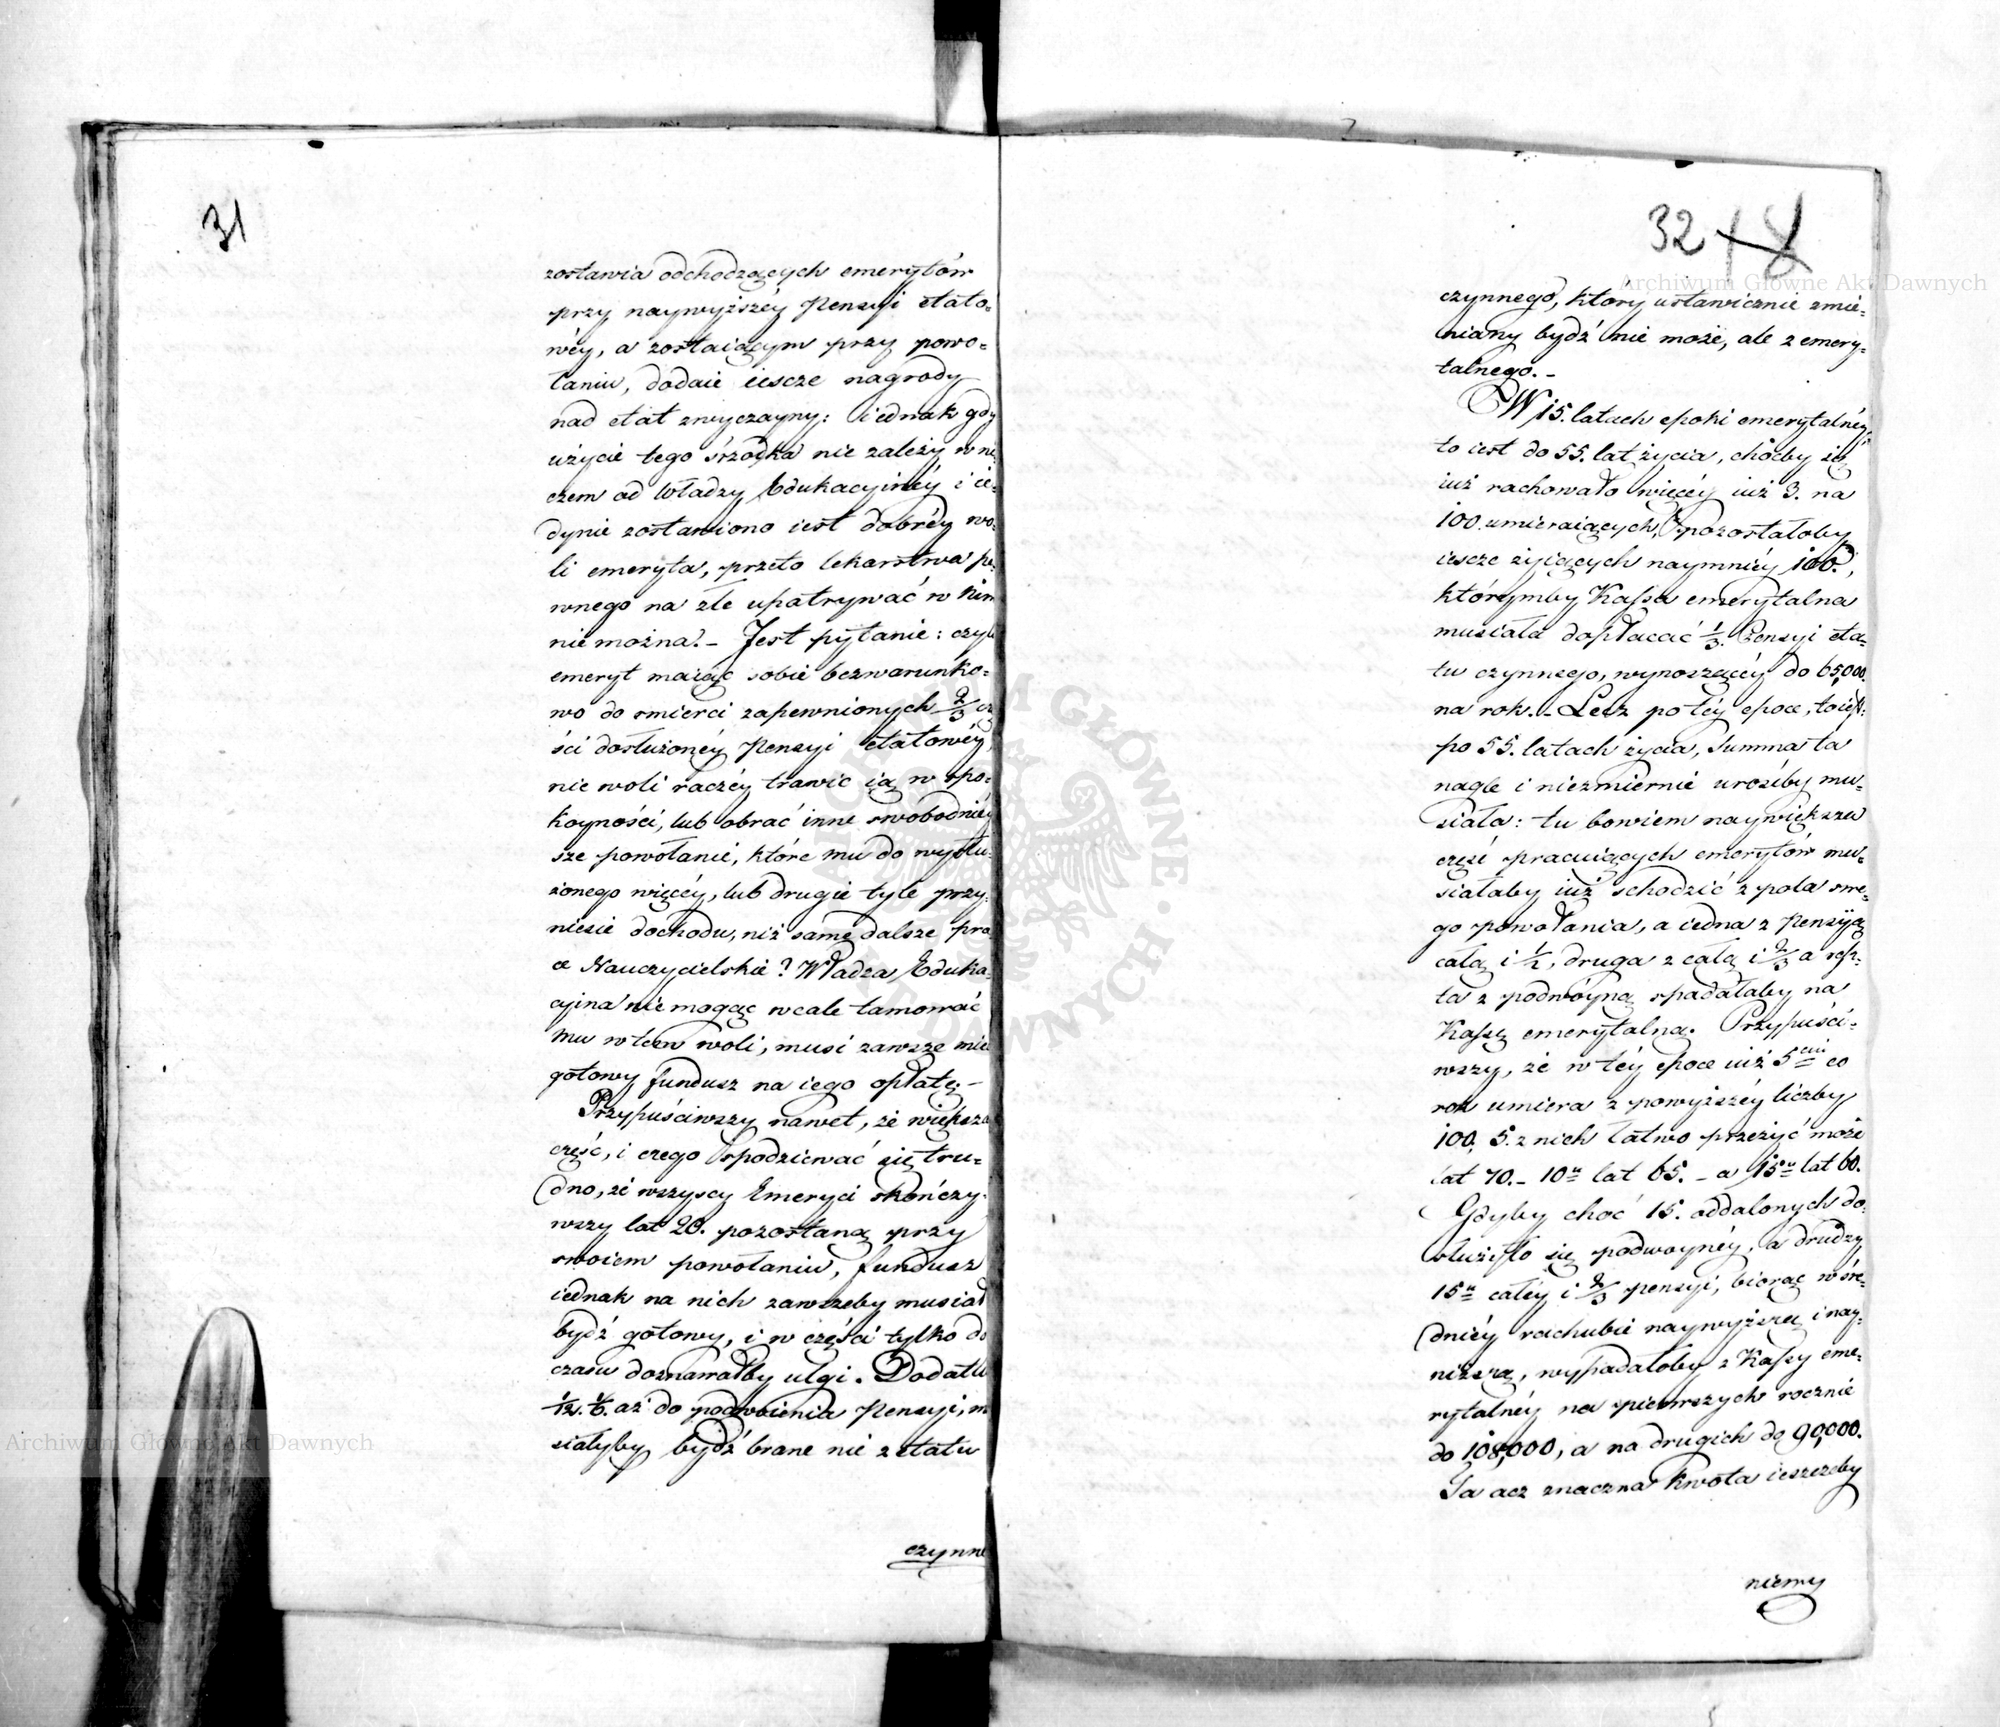 31
zostawia odchodzących emerytów
przy naywyższéy Pensyi etato=
wéy, a zostaiącym przy powo=
łaniu, dodaie ieszcze nagrody
nad etat zwyczayny: iednak gdy
użycie tego śrzodka nie zależy w ni
czem od Władzy Edukacyinéy i ie=
dynie zostawiono iest dobréy wo=
li emeryta, przeto lekarstwa pe=
wnego na złe upatrywać w nim
nie można. – Jest pytanie: czyli
emeryt maiąc sobie bezwarunko=
wo do smierci zapewnionych 2/3 cz
ści dosłużonéy Pensyi etatowéy,
nie woli raczéy trawić ią w spo=
koyności, lub obrać inne swobodniéy
sze powołanie, które mu do wysłu=
żonego więcéy, lub drugie tyle przy=
niesie dochodu, niż same dalsze pra
ce Nauczycielskie? Władza Eduka=
cyina nie mogąc wcale tamować
mu w tem woli, musi zawsze mie
gotowy fundusz na iego opłatę. –
Przypuściwszy nawet, że większa
część, i czego spodziewać się tru=
dno, że wszyscy Emeryci skończy=
wszy lat 20. pozostaną przy
swoiem powołaniu, fundusz
iednak na nich zawszeby musiał
bydź gotowy, i w części tylko do
czasu doznawałby ulgi. Dodatki
1/12. 1/6. aż do podwoienia Pensyi, m
siałyby bydź brane nie z etatu
czynne
32 18
czynnego, ktory ustawicznie zmie=
niany bydź nie może, ale z emery=
talnego. –
W 15. latach epoki emerytalnéy,
to iest do 55. lat życia, choćby się
iuż rachowało więcéy iuż 3. na
100. umieraiących, pozostałoby
ieszcze żyiących naymniéy 100.,
którymby Kassa emerytalna
musiała dopłacać 1/3. Pensyi eta=
tu czynnego, wynoszącéy do 65,000.
na rok. – Lecz po téy epoce, to iest:
po 55. latach życia, Summa ta
nagle i niezmiernie urośćby mu=
siała: tu bowiem naywiększa
część pracuiących emerytów mu=
siałaby iuż schodzić z pola swe=
go powołania, a iedna z Pensyą
całą i 1/2, druga z całą i 2/3 a resz=
ta z podwóyną spadałaby na
Kassę emerytalną. Przypuści=
wszy, że w téy epoce iuż 5ciu co
rok umiera z powyższéy liczby
100, 5. z nich łatwo przeżyć może
lat 70. – 10u lat 65. – a 15u lat 60.
Gdyby choć 15. oddalonych do=
służyło się podwoynéy, a drudzy
15u całéy i 2/3 pensyi, biorąc w śre=
dniéy rachubie naywyższą i nay=
niższą, wypadałoby z Kassy eme=
rytalnéy na pierwszych rocznie
do 108,000, a na drugich do 90,000.
Ta acz znaczna kwota ieszczeby
niemy
Archiwum Główne Akt Dawnych
Archiwum Główne Akt Dawnych
ARCHIWUM GŁÓWNE AKT DAWNYCH